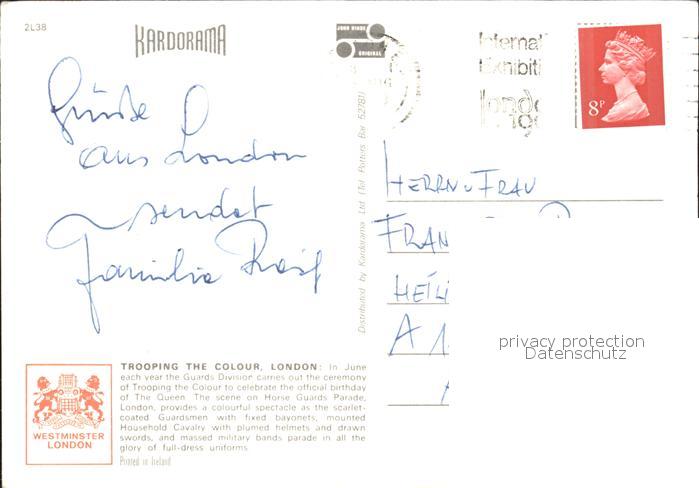 2L38
KARDORAMA
JOHN HINDE
ORIGINAL
Internat
Exhibiti
londo
8P
Grüße
aus London
sendet
Familie
Distributed by Kardorama Ltd (Tel Potters Bar 52781)
HERRN u FRAU
FRAN
HEILI
A 1
privacy protection
Datenschutz
WESTMINSTER
LONDON
TROOPING THE COLOUR, LONDON: In June
each year the Guards Division carries out the ceremony
of Trooping the Colour to celebrate the official birthday
of The Queen. The scene on Horse Guards Parade,
London, provides a colourful spectacle as the scarlet-
coated Guardsmen with fixed bayonets, mounted
Household Cavalry with plumed helmets and drawn
swords, and massed military bands parade in all the
glory of full-dress uniforms.
Printed in Ireland